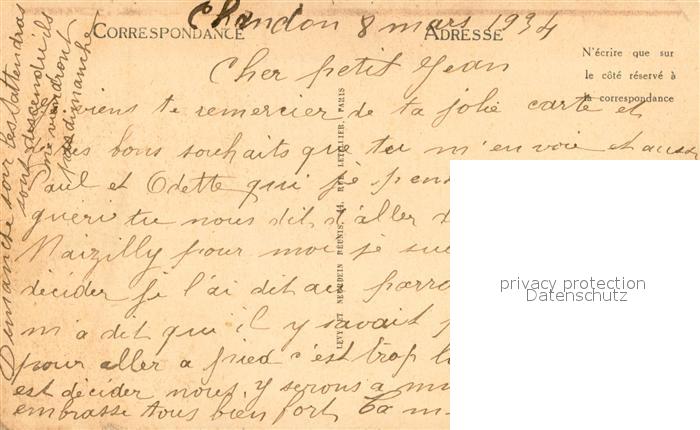 Chandon 8 mars 1934
CORRESPONDANCE
ADRESSE
N'écrire que sur
le côté réservé à
la correspondance
Cher petit Jean
viens te remercier de ta jolie carte et
bons souhaits que tu m'envoie et aussi
Paul et Odette qui je pens
gueri tu nous dit d'aller
Maizilly pour moi je sui
décider je l'ai dit au parra
m'a dit qu'il y savait
pour aller a pied c'est trop l
est décider nous y serons a mi
embrasse tous bien fort Ta m
Dimanche soir les attendras
sont descendu ils
me viendront
pas dimanche
LEVY ET NEURDEIN RÉUNIS, 44, RUE LETELLIER, PARIS
privacy protection
Datenschutz